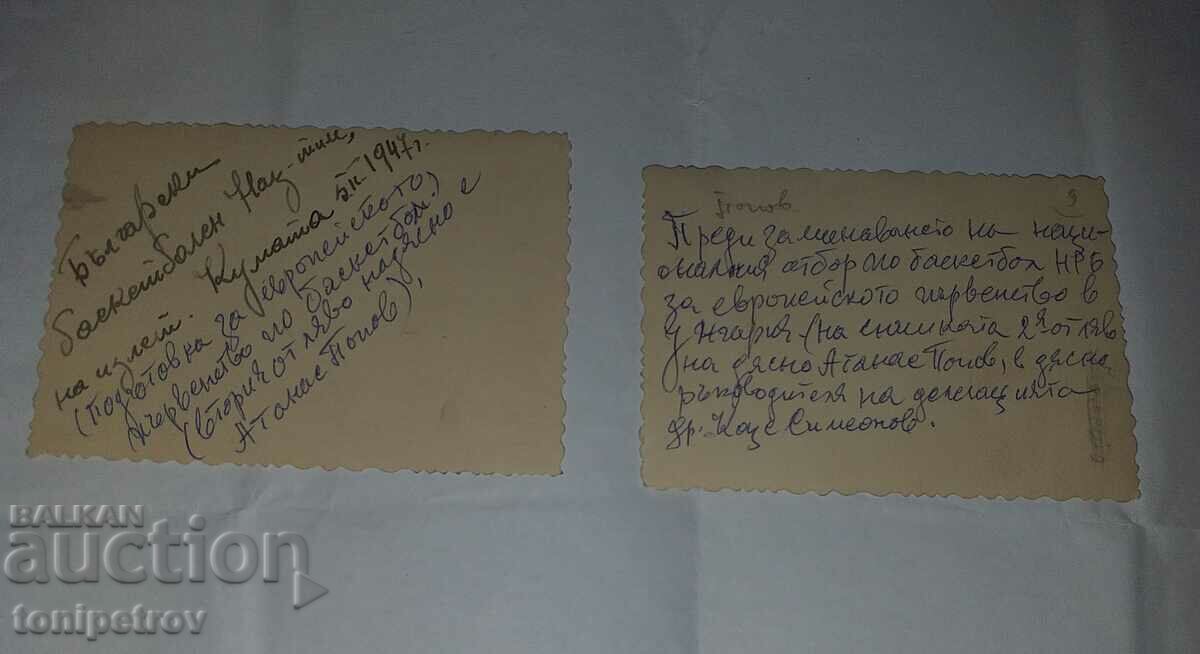 Български
баскетболен Нац-тим,
на излет. Кумата 1947г.
(Подготовка за европейското
първенство по баскетбол)
(втори от ляво надясно е
Атанас Попов),
Попов
9
Преди заминаването на наци-
оналния отбор по баскетбол НРБ
за европейското първенство в
Унгария (на снимката 2я от ляво
на дясно Атанас Попов, в дясно
ръководителя на делегацията
др. Коце Симеонов.
BALKAN
auction
tonipetrov